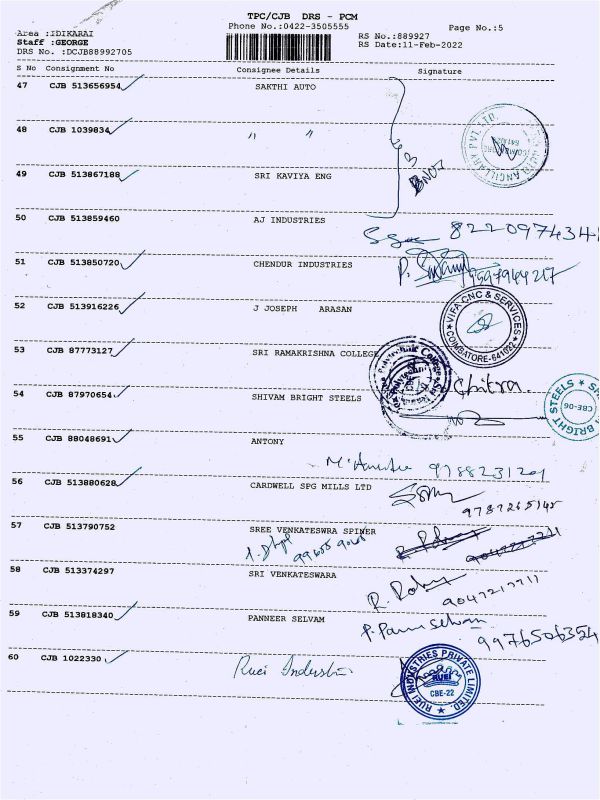 TPC/CJB DRS - PCM
Phone No.:0422-3505555
Page No.:5
Area :IDIKARAI
RS No.:889927
Staff :GEORGE
RS Date:11-Feb-2022
DRS No. :DCJB88992705
S No Consignment No Consignee Details Signature
47 CJB 513656954 SAKTHI AUTO
48 CJB 1039834 " "
49 CJB 513867188 SRI KAVIYA ENG
50 CJB 513859460 AJ INDUSTRIES
51 CJB 513850720 CHENDUR INDUSTRIES
52 CJB 513916226 J JOSEPH ARASAN
VIFA CNC & SERVICES
COIMBATORE-641022
53 CJB 87773127 SRI RAMAKRISHNA COLLEGE
Chitra.
54 CJB 87970654 SHIVAM BRIGHT STEELS
CBE-06
55 CJB 88048691 ANTONY
9788231201
56 CJB 513880628 CARDWELL SPG MILLS LTD
57 CJB 513790752 SREE VENKATESWRA SPINER
58 CJB 513374297 SRI VENKATESWARA
59 CJB 513818340 PANNEER SELVAM
P. Panneerselvam
9976506354
60 CJB 1022330 Ruei Industries
RUEI INDUSTRIES PRIVATE LIMITED.
RUEI
CBE-22